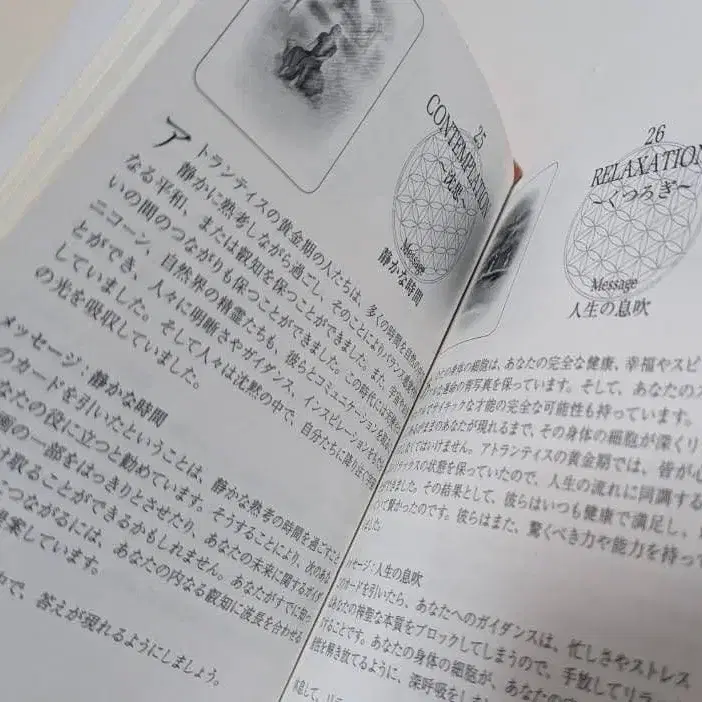 25
CONTEMPLATION
～沈思～
Message
静かな時間
アトランティスの黄金期の人たちは、多くの時間を自然の
静かに熟考しながら過ごし、そのことによりバランス
なる平和、または叡知を保つことができました。また、宇宙
いの間のつながりも保つことができました。この時代には
ニコーン、自然界の精霊たちも、彼らとコミュニケーションを
とができ、人々に明晰さやガイダンス、インスピレーションを
していました。そして人々は沈黙の中で、自分たちに降り注ぐ
の光を吸収していました。
メッセージ：静かな時間
のカードを引いたということは、静かな熟考の時間を過ごすこと
なたの役に立つと勧めています。そうすることにより、次の
画の一部をはっきりとさせたり、あなたの未来に関するガイダ
け取ることができるかもしれません。あなたがすでに
につながるには、あなたの内なる叡知に波長を合わせる
提案しています。
中で、答えが現れるようにしましょう。
26
RELAXATION
～くつろぎ～
Message
人生の息吹
の身体の細胞は、あなたの完全な健康、幸福やスピ
な運命の青写真を保っています。そして、あなたのス
サイキックな才能の完全な可能性も持っています。
ままのあなたが現れるまで、その身体の細胞が深くリ
なくてはいけません。アトランティスの黄金期では、皆が心
ラックスの状態を保っていたので、人生の流れに同調する
できました。その結果として、彼らはいつも健康で満足し、
て賢かったのです。彼らはまた、驚くべき力や能力を持って
ました
ッセージ：人生の息吹
カードを引いたら、あなたへのガイダンスは、忙しさやストレス
あなたの神聖な本質をブロックしてしまうので、手放してリラ
することです。あなたの身体の細胞が、あなたの
を解き放てるように、深呼吸をしま
息して、リラ